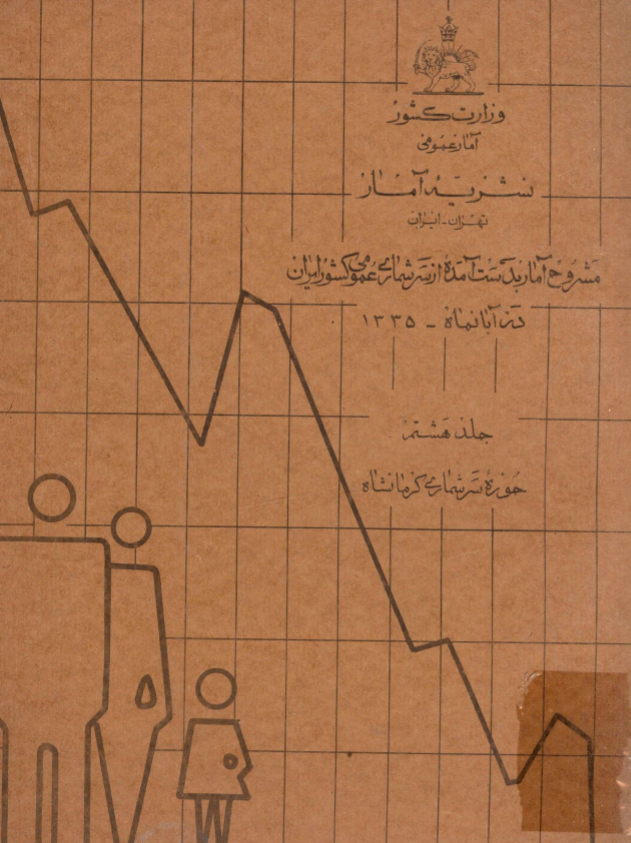 وزارت کشور
آمار عمومی
نشریهٔ آمار
تهران - ایران
مشروح آمار بدست آمده از سرشماری عمومی کشور ایران
در آبانماه - ۱۳۳۵
جلد هشتم
حوزه سرشماری کرمانشاه